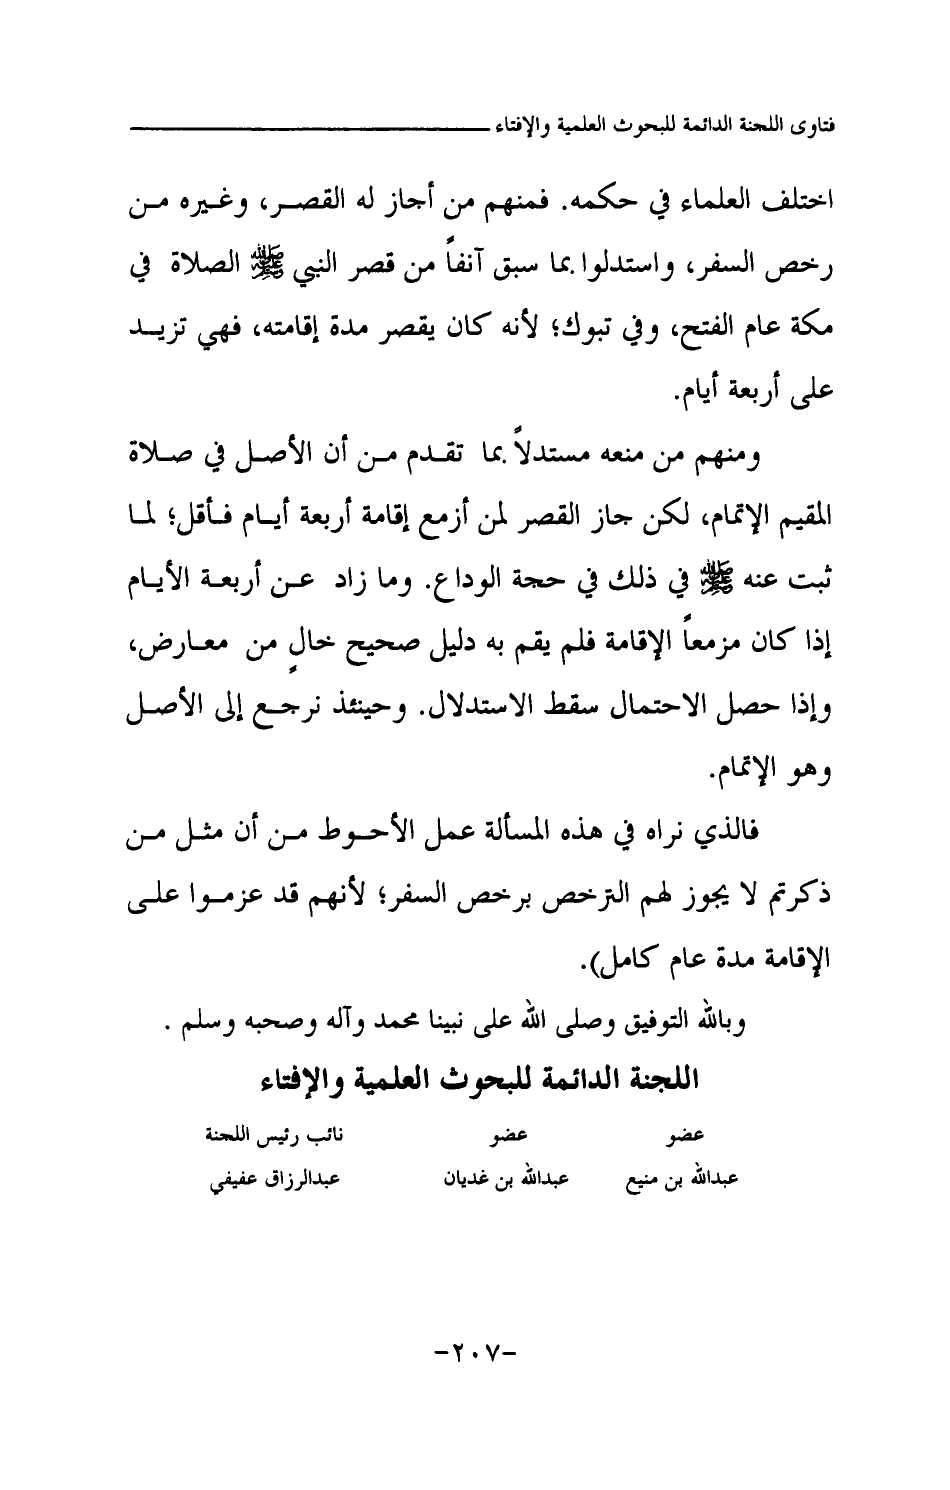 فتاوى اللجنة الدائمة للبحوث العلمية والإفتاء
اختلف العلماء في حكمه. فمنهم من أجاز له القصر، وغيره من
رخص السفر، واستدلوا بما سبق آنفاً من قصر النبي ﷺ الصلاة في
مكة عام الفتح، وفي تبوك؛ لأنه كان يقصر مدة إقامته، فهي تزيد
على أربعة أيام.
ومنهم من منعه مستدلاً بما تقدم من أن الأصل في صلاة
المقيم الإتمام، لكن جاز القصر لمن أزمع إقامة أربعة أيام فأقل؛ لما
ثبت عنه ﷺ في ذلك في حجة الوداع. وما زاد عن أربعة الأيام
إذا كان مزمعاً الإقامة فلم يقم به دليل صحيح خالٍ من معارض،
وإذا حصل الاحتمال سقط الاستدلال. وحينئذ نرجع إلى الأصل
وهو الإتمام.
فالذي نراه في هذه المسألة عمل الأحوط من أن مثل من
ذكرتم لا يجوز لهم الترخص برخص السفر؛ لأنهم قد عزموا على
الإقامة مدة عام كامل).
وبالله التوفيق وصلى الله على نبينا محمد وآله وصحبه وسلم .
اللجنة الدائمة للبحوث العلمية والإفتاء
عضو عضو نائب رئيس اللجنة
عبدالله بن منيع عبدالله بن غديان عبدالرزاق عفيفي
-٢٠٧-